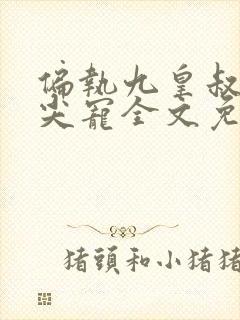 偏執九皇叔
尖寵全文免
猪頭和小猪猪